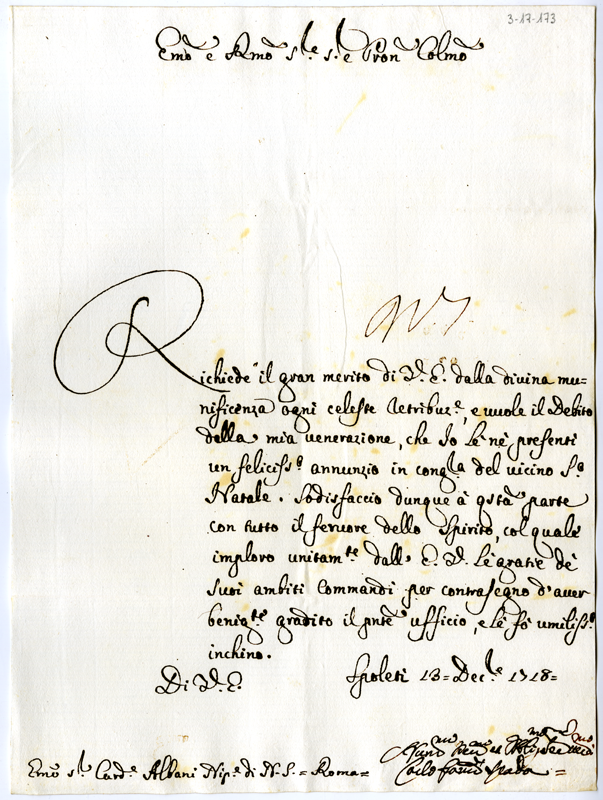 3-17-173
Emo e Rmo Sre Sre e Pron Colmo
Richiede il gran merito di V. E. dalla divina mu=
nificenza ogni celeste retribuze, e vuole il Debito
della mia venerazione, che Io le ne presenti
un felicisso annunzio in congla del vicino So
Natale. Sodisfaccio dunque à qsta parte
con tutto il fervore dello Spirito, col quale
imploro unitamte dall' E. V. le gratie de
suoi ambiti Commandi per contrasegno d'aver
benigte gradito il pnte ufficio, e le fò umilisso
inchino.
Di V. E.
Spoleti 13= Decre 1718=
Emo Sr Carde Albani Nipe di N. S. = Roma=
Carlo Spada